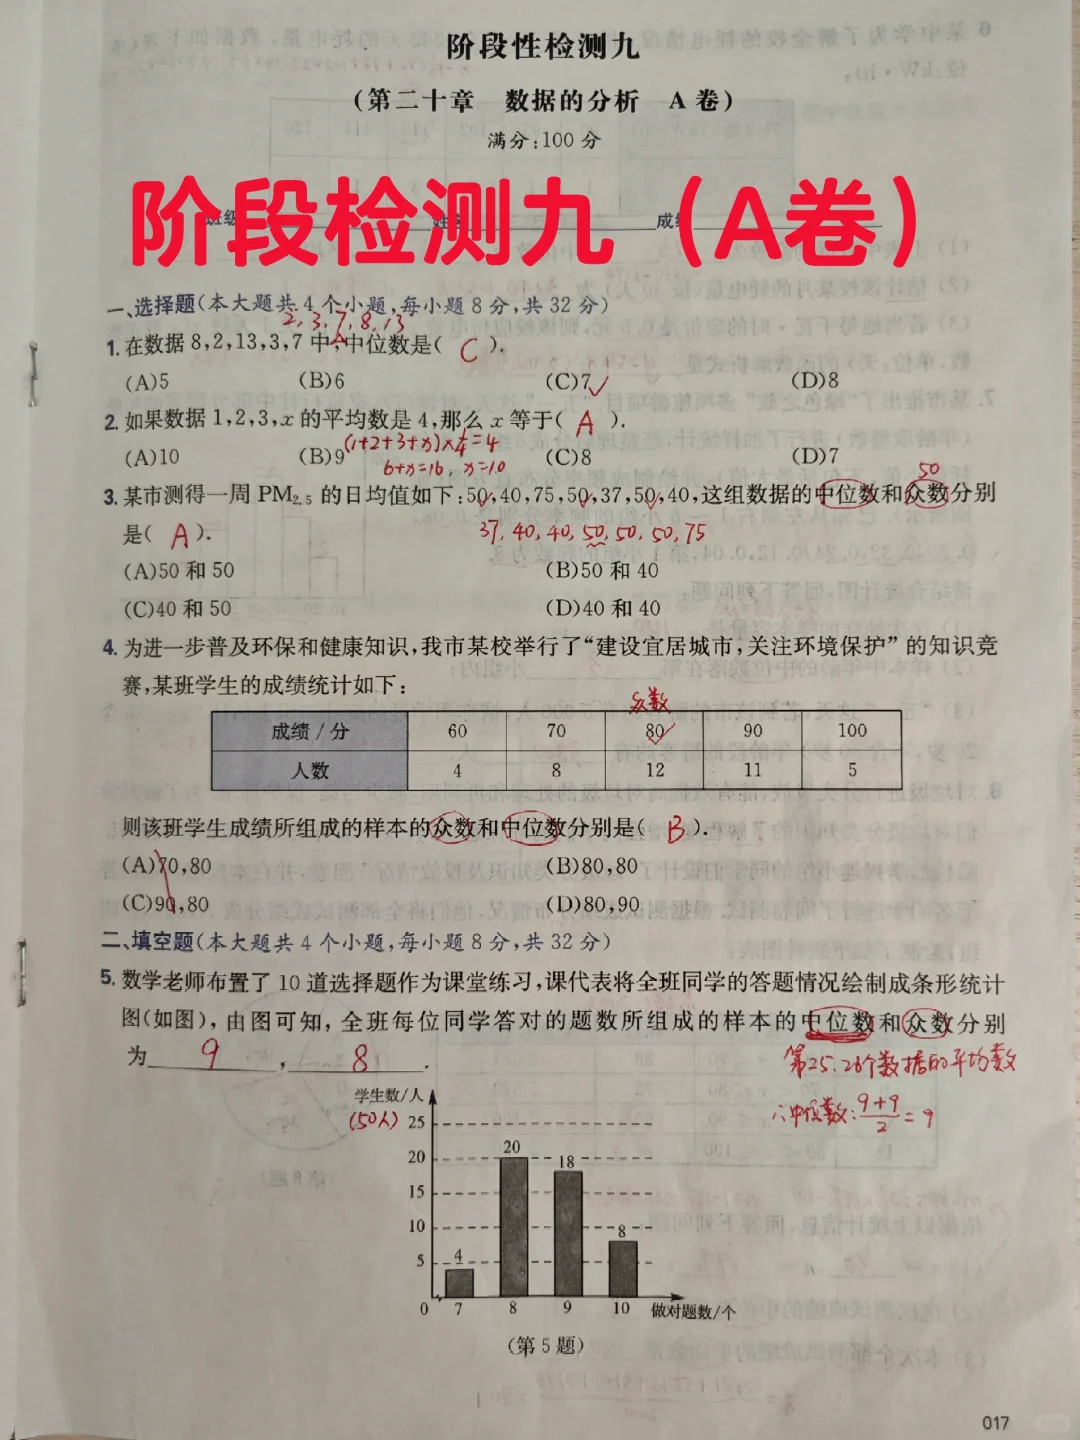 阶段性检测九
(第二十章 数据的分析 A卷)
满分:100分
阶段检测九（A卷）
班级 成绩
一、选择题(本大题共4个小题,每小题8分,共32分)
2,3,7,8,13
1.在数据8,2,13,3,7中,中位数是( C ).
(A)5 (B)6 (C)7 (D)8
2.如果数据1,2,3,x的平均数是4,那么x等于( A ).
(1+2+3+x)×1/4=4
(A)10 (B)9 (C)8 (D)7
6+x=16, x=10
50
3.某市测得一周PM2.5的日均值如下:50,40,75,50,37,50,40,这组数据的中位数和众数分别
是( A ).
37,40,40,50,50,50,75
(A)50和50 (B)50和40
(C)40和50 (D)40和40
4.为进一步普及环保和健康知识,我市某校举行了“建设宜居城市,关注环境保护”的知识竞
赛,某班学生的成绩统计如下:
众数
成绩/分 60 70 80 90 100
人数 4 8 12 11 5
则该班学生成绩所组成的样本的众数和中位数分别是( B ).
(A)70,80 (B)80,80
(C)90,80 (D)80,90
二、填空题(本大题共4个小题,每小题8分,共32分)
5.数学老师布置了10道选择题作为课堂练习,课代表将全班同学的答题情况绘制成条形统计
图(如图),由图可知,全班每位同学答对的题数所组成的样本的中位数和众数分别
为 9 , 8 .
第25.26个数据的平均数
∴中位数:9+9/2=9
学生数/人
(50人)
25
20
15
10
5
0
4
20
18
8
7 8 9 10 做对题数/个
(第5题)
017